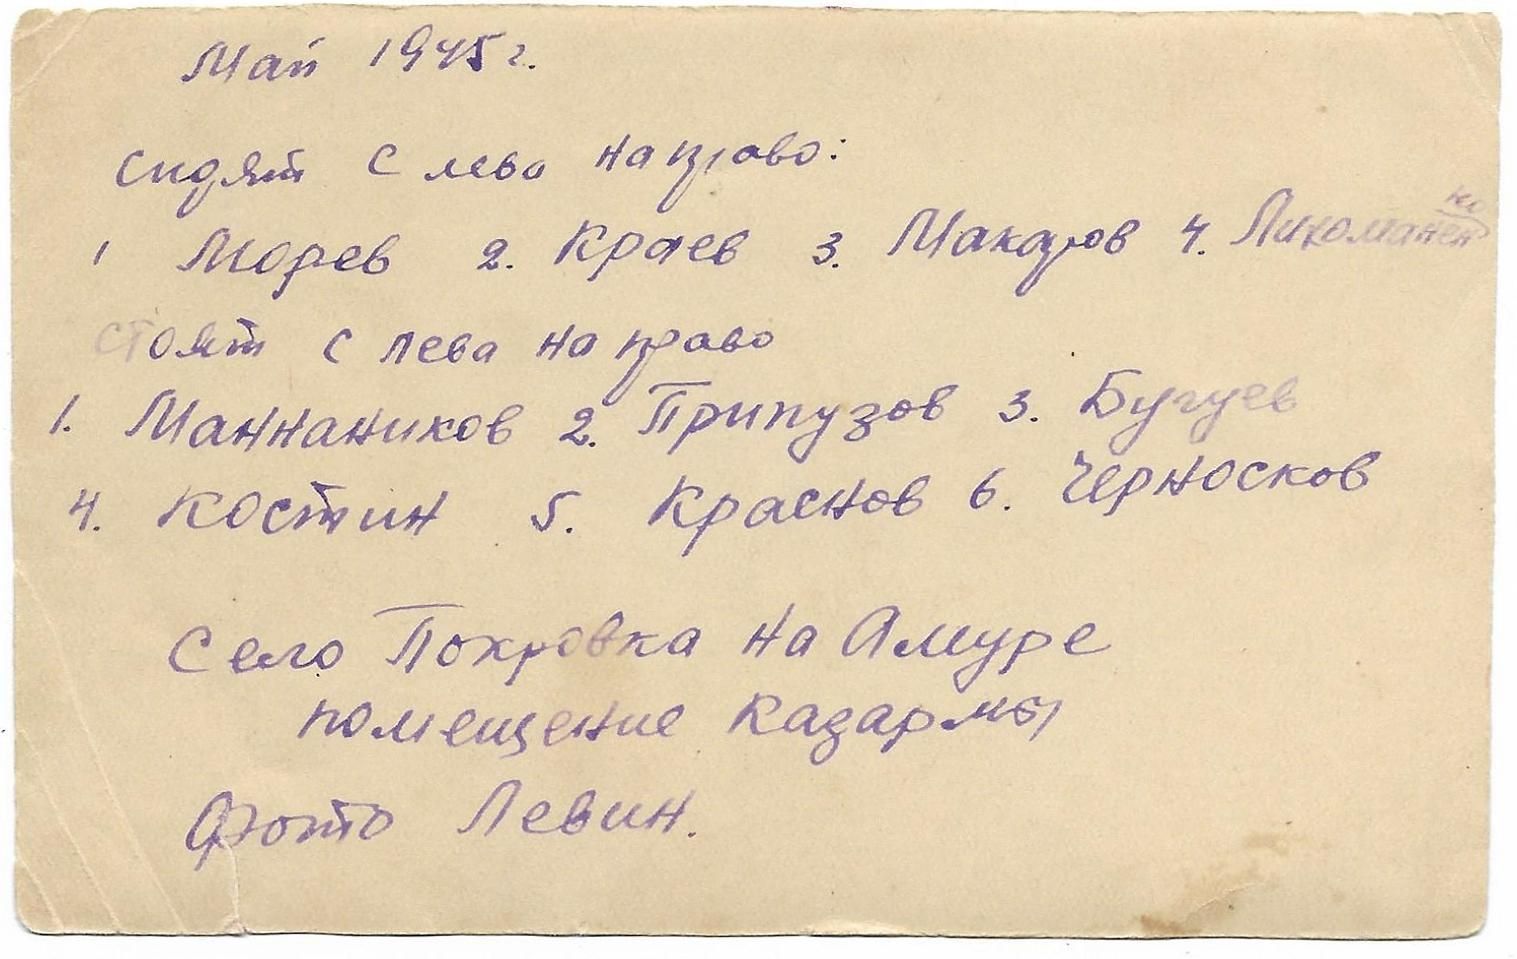 Май 1945 г.
сидят с лева на право:
1 Морев 2. Краев 3. Макаров 4.
стоят с лева на право
1. Маннаников 2. Припузов 3. Бугуев
4. Костин 5. Краснов 6. Черносков
Село Покровка на Амуре
помещение казармы
Фото Левин.